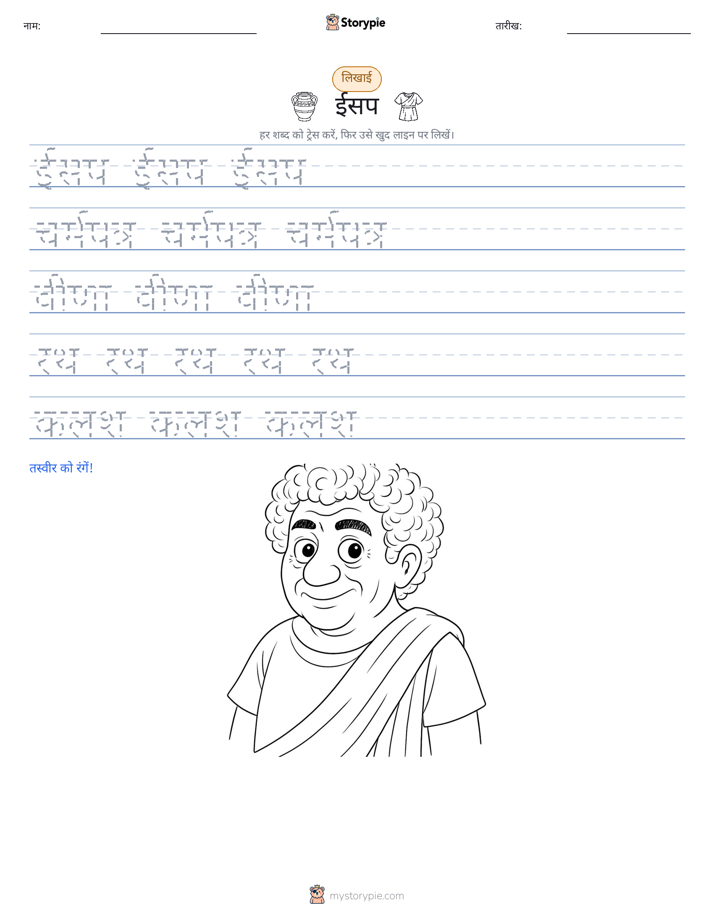 नाम:
Storypie
तारीख:
लिखाई
ईसप
हर शब्द को ट्रेस करें, फिर उसे खुद लाइन पर लिखें।
ईसप ईसप ईसप
चर्मपत्र चर्मपत्र चर्मपत्र
वीणा वीणा वीणा
रथ रथ रथ रथ रथ
कलश कलश कलश
तस्वीर को रंगें!
mystorypie.com